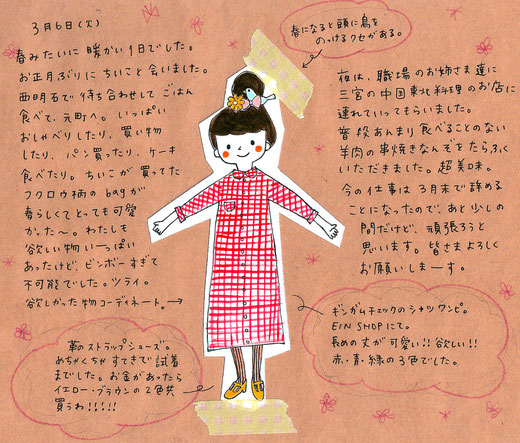 3月6日(火)
春みたいに暖かい1日でした。
お正月ぶりにちいこと会いました。
西明石で待ち合わせしてごはん
食べて、元町へ。いっぱい
おしゃべりしたり、買い物
したり、パン買ったり、ケーキ
食べたり。ちいこが買ってた
フクロウ柄のbagが
春らしくてとっても可愛
かった〜。わたしも
欲しい物いーっぱい
あったけど、ビンボーすぎて
不可能でした。ツライ。
欲しかった物コーディネート。→
革のストラップシューズ。
めちゃくちゃすてきで試着
までした。お金があったら
イエロー・ブラウンの2色共
買うわ!!!!!
春になると頭に鳥を
のっけるクセがある。
夜は、職場のお姉さま達に
三宮の中国東北料理のお店に
連れていってもらいました。
普段あんまり食べることのない
羊肉の串焼きなんぞをたらふく
いただきました。超美味。
今の仕事は3月末で辞める
ことになったので、あと少しの
間だけど、頑張ろうと
思います。皆さまよろしく
お願いしまーす。
ギンガムチェックのシャツワンピ。
EIN SHOPにて。
長めの丈が可愛い!!欲しい!!
赤・青・緑の3色でした。